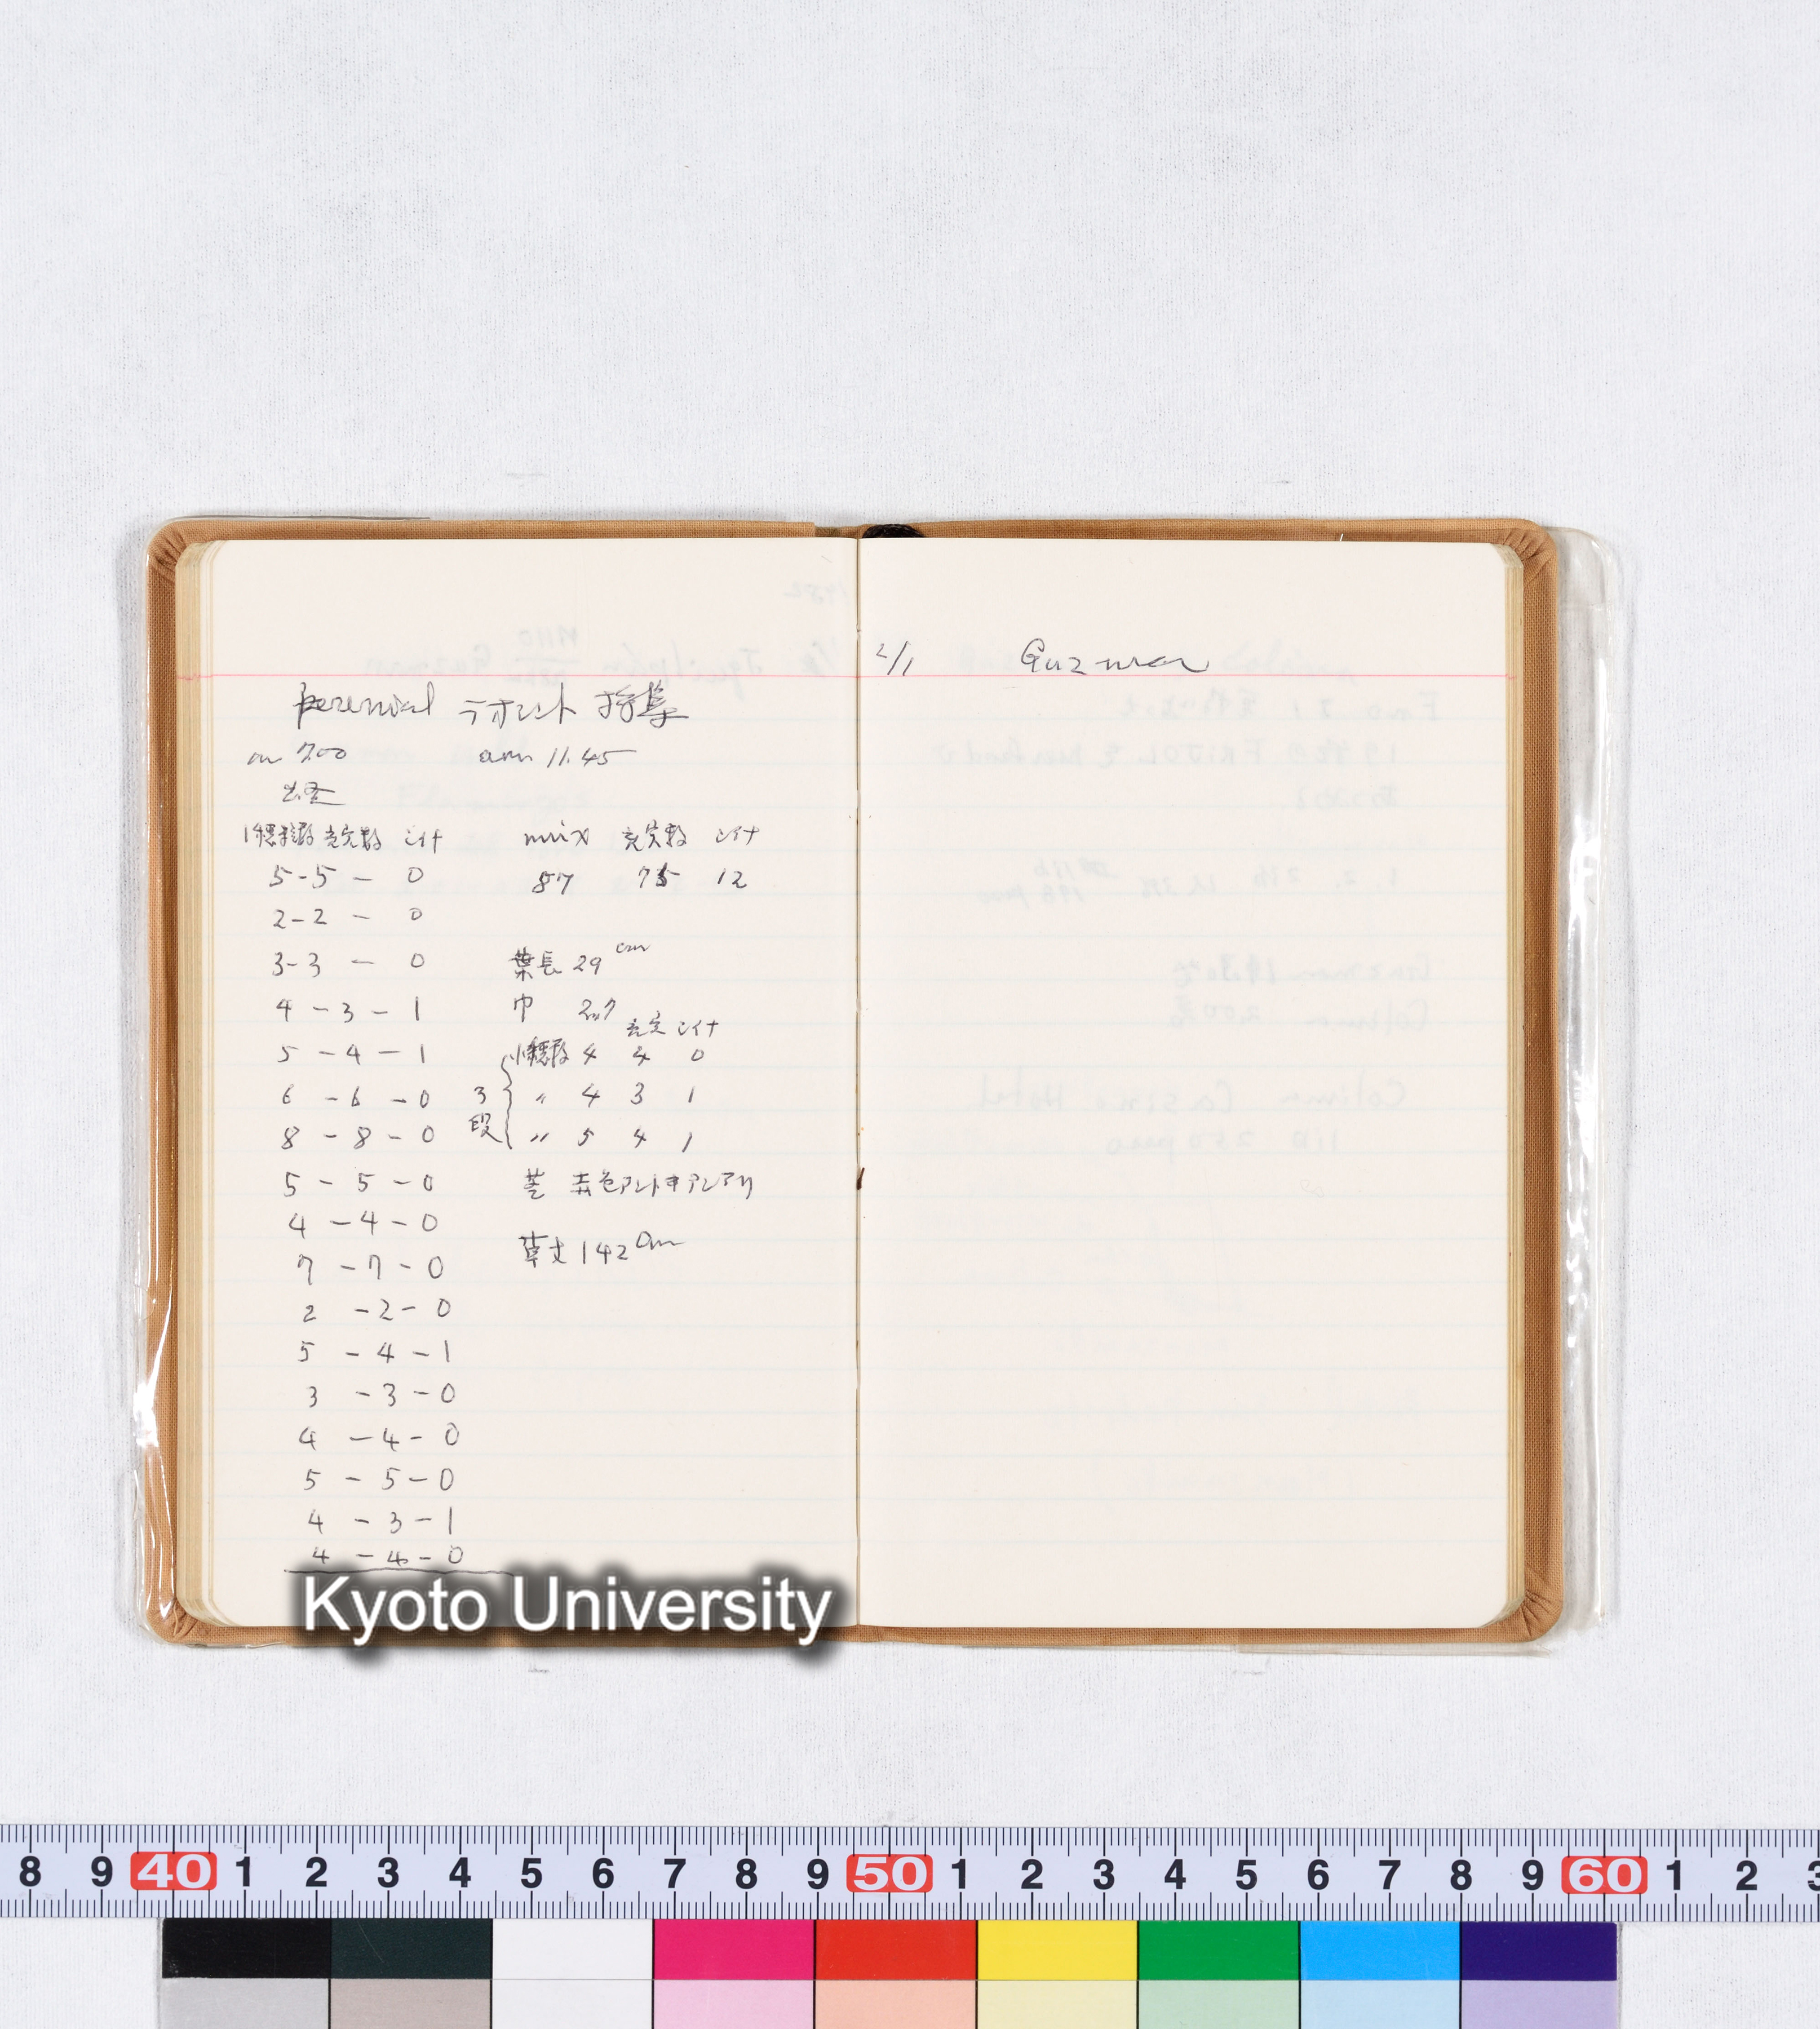 2/1 Guzman
perennial テオシント 採集
am 7.00 am 11.45
出発
1穂粒数 充実数 シイナ
5-5 - 0
2-2 - 0
3-3 - 0
4 - 3 - 1
5 - 4 - 1
6 - 6 - 0
8 - 8 - 0
5 - 5 - 0
4 - 4 - 0
7 - 7 - 0
2 - 2 - 0
5 - 4 - 1
3 - 3 - 0
4 - 4 - 0
5 - 5 - 0
4 - 3 - 1
4 - 4 - 0
mix 充実数 シイナ
87 75 12
葉長 29 cm
巾 2.7
充実 シイナ
3段
小穂数 4 4 0
〃 4 3 1
〃 5 4 1
茎 赤色アントキアンアリ
草丈 142 cm
Kyoto University
8 9 40 1 2 3 4 5 6 7 8 9 50 1 2 3 4 5 6 7 8 9 60 1 2 3